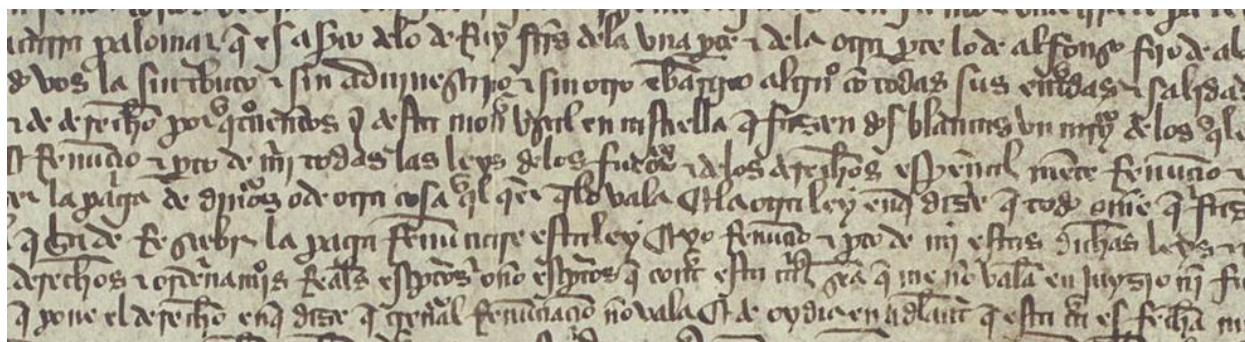 palomar q̃ es a pto delo de Ruy frrs dela vna pte ⁊ de la otra pte lo de alfonso fijo de al
do vos la sin tbuto ⁊ sin aduinestrço ⁊ sin otro ẽbargo algũo cõ todas sus entdas ⁊ salidas
⁊ de derecho por q̃troçientos mr̃s desta mon vsual en castiella q̃ fasen dos blancas vn mr̃ delos q̃les
Renunçio ⁊ pto de mĩ todas las leys delos fueros ⁊ delos derechos espeçial mente Renunçio
la paga de dineros o de otra cosa q̃l quier q̃ lo vala Et la otra ley enq̃ dise q̃ todo omẽ q̃ fase
q̃ ha de Resçebir la paga Renunçiase esta ley Et yo Renunçio ⁊ pto de mi estas dichas leys ⁊
derechos ⁊ ordenamĩos Reales esptos o nõ esptos q̃ cont esta cta seã q̃ me nõ valã en juysio nĩ fu
q̃ pone el derecho enq̃ dise q̃ general Renunçiaçiõ nõ vala Et de oy dia en adlant q̃ esta cta es fecha